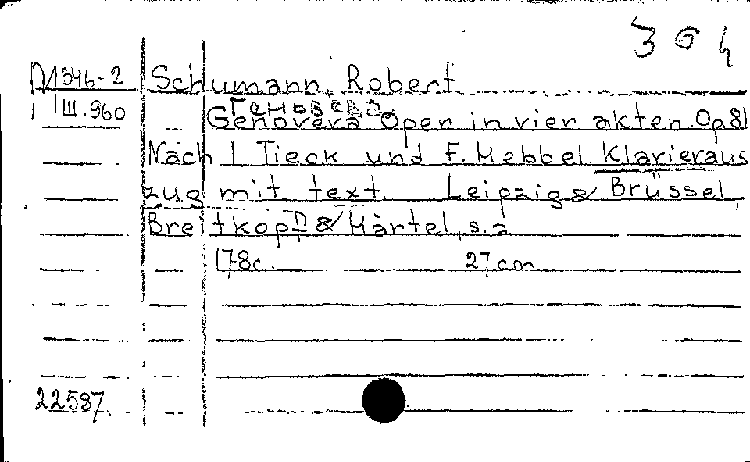 304
Д1346-2 Schumann, Robert
III.960 Геновева
Genoveva Oper in vier akten. Op 81
Nach L Tieck und F. Hebbel Klavieraus
zug mit text Leipzig & Brüssel
Breitkopf & Härtel, s.a
178c. 27 cm
22587.